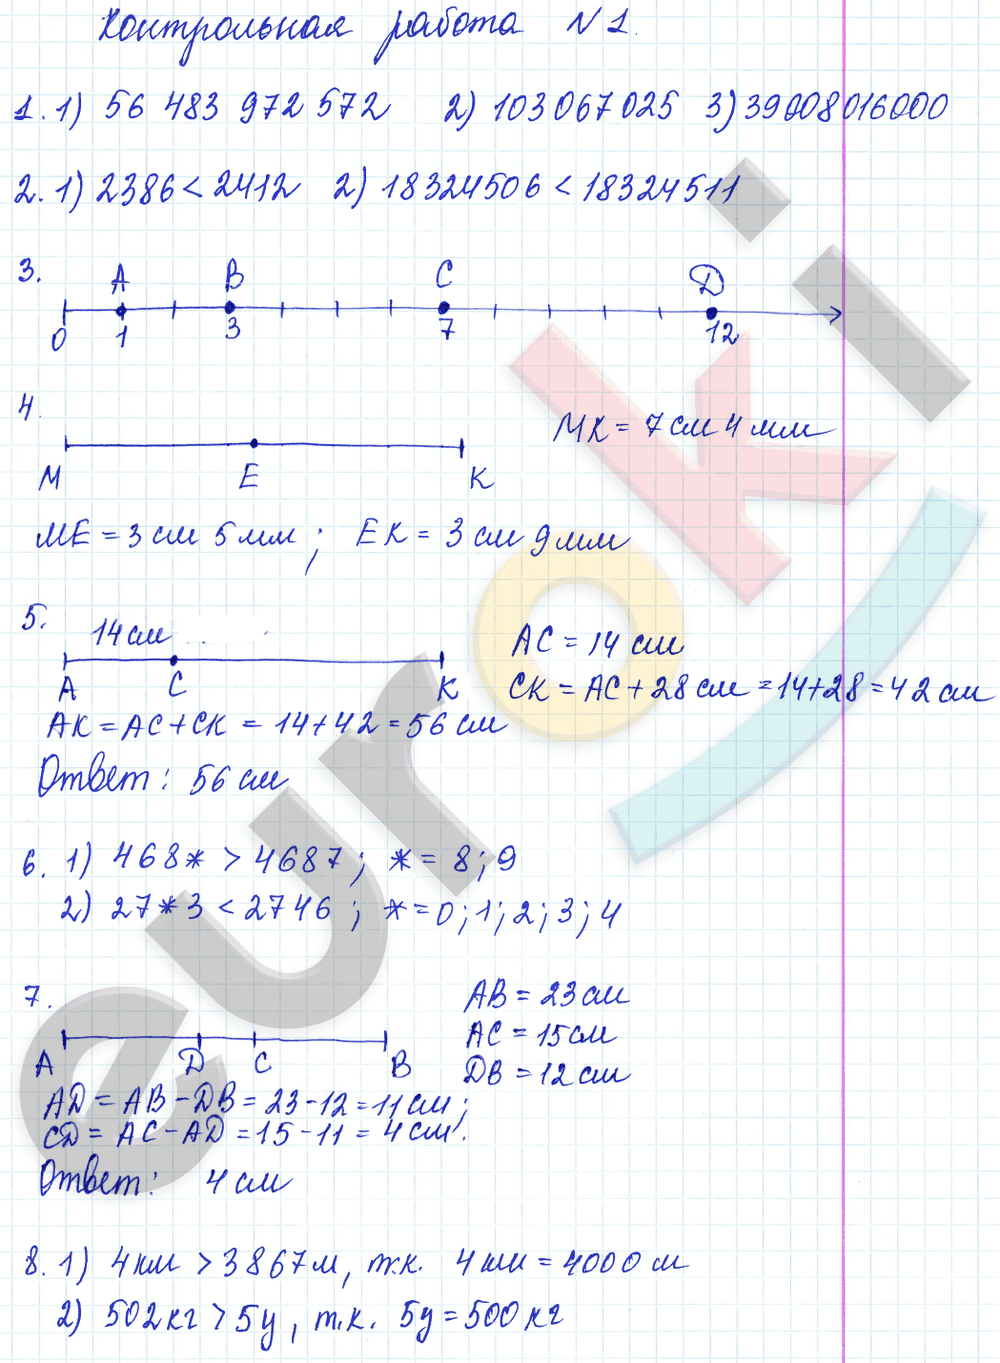 Контрольная работа N 1.
1. 1) 56 483 972 572 2) 103 067 025 3) 39008016000
2. 1) 2386 < 2412 2) 18324506 < 18324511
3. A B C D
0 1 3 7 12
4.
MK = 7 см 4 мм
M E K
ME = 3 см 5 мм ; EK = 3 см 9 мм
5. 14 см
AC = 14 см
A C K CK = AC + 28 см = 14+28 = 42 см
AK = AC + CK = 14+42 = 56 см
Ответ: 56 см
6. 1) 468* > 4687 ; * = 8 ; 9
2) 27*3 < 2746 ; * = 0 ; 1 ; 2 ; 3 ; 4
7. AB = 23 см
AC = 15 см
A D C B DB = 12 см
AD = AB - DB = 23 - 12 = 11 см ;
CD = AC - AD = 15 - 11 = 4 см.
Ответ: 4 см
8. 1) 4 км > 3867 м, т.к. 4 км = 4000 м
2) 502 кг > 5 ц, т.к. 5 ц = 500 кг
euroki